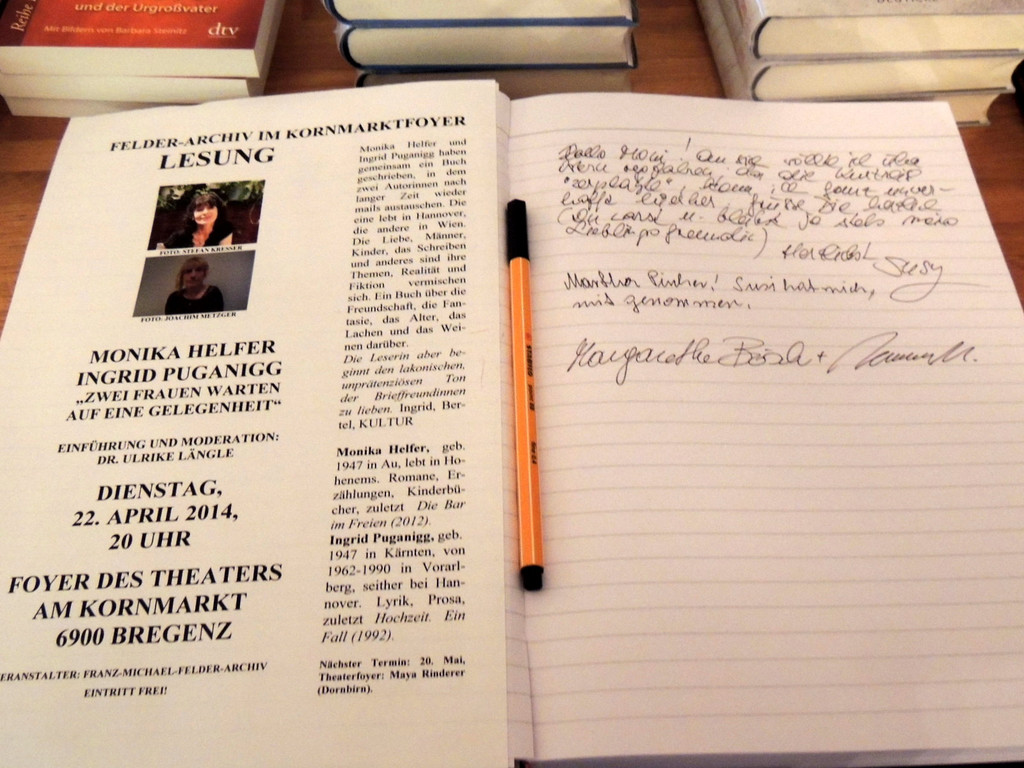 Reihe
und der Urgroßvater
Mit Bildern von Barbara Steinitz
dtv
FELDER-ARCHIV IM KORNMARKTFOYER
LESUNG
FOTO: STEFAN KRESSER
FOTO: JOACHIM METZGER
MONIKA HELFER
INGRID PUGANIGG
„ZWEI FRAUEN WARTEN
AUF EINE GELEGENHEIT“
EINFÜHRUNG UND MODERATION:
DR. ULRIKE LÄNGLE
DIENSTAG,
22. APRIL 2014,
20 UHR
FOYER DES THEATERS
AM KORNMARKT
6900 BREGENZ
ERANSTALTER: FRANZ-MICHAEL-FELDER-ARCHIV
EINTRITT FREI!
Monika Helfer und
Ingrid Puganigg haben
gemeinsam ein Buch
geschrieben, in dem
zwei Autorinnen nach
langer Zeit wieder
mails austauschen. Die
eine lebt in Hannover,
die andere in Wien.
Die Liebe, Männer,
Kinder, das Schreiben
und anderes sind ihre
Themen, Realität und
Fiktion vermischen
sich. Ein Buch über die
Freundschaft, die Fan-
tasie, das Alter, das
Lachen und das Wei-
nen darüber.
Die Leserin aber be-
ginnt den lakonischen,
unprätenziösen Ton
der Brieffreundinnen
zu lieben. Ingrid, Ber-
tel, KULTUR
Monika Helfer, geb.
1947 in Au, lebt in Ho-
henems. Romane, Er-
zählungen, Kinderbü-
cher, zuletzt Die Bar
im Freien (2012).
Ingrid Puganigg, geb.
1947 in Kärnten, von
1962-1990 in Vorarl-
berg, seither bei Han-
nover. Lyrik, Prosa,
zuletzt Hochzeit. Ein
Fall (1992).
Nächster Termin: 20. Mai,
Theaterfoyer: Maya Rinderer
(Dornbirn).
Hallo Moni! ich
die
"zerplatzt", ich ganz unver-
hofft hier, grüsse Dich herzlich
(Du warst u. bleibst ja stets meine
Lieblingsfreundin)
Herzlichst
Susy
Martha! Susi hat mich,
mit genommen.
Margarethe +